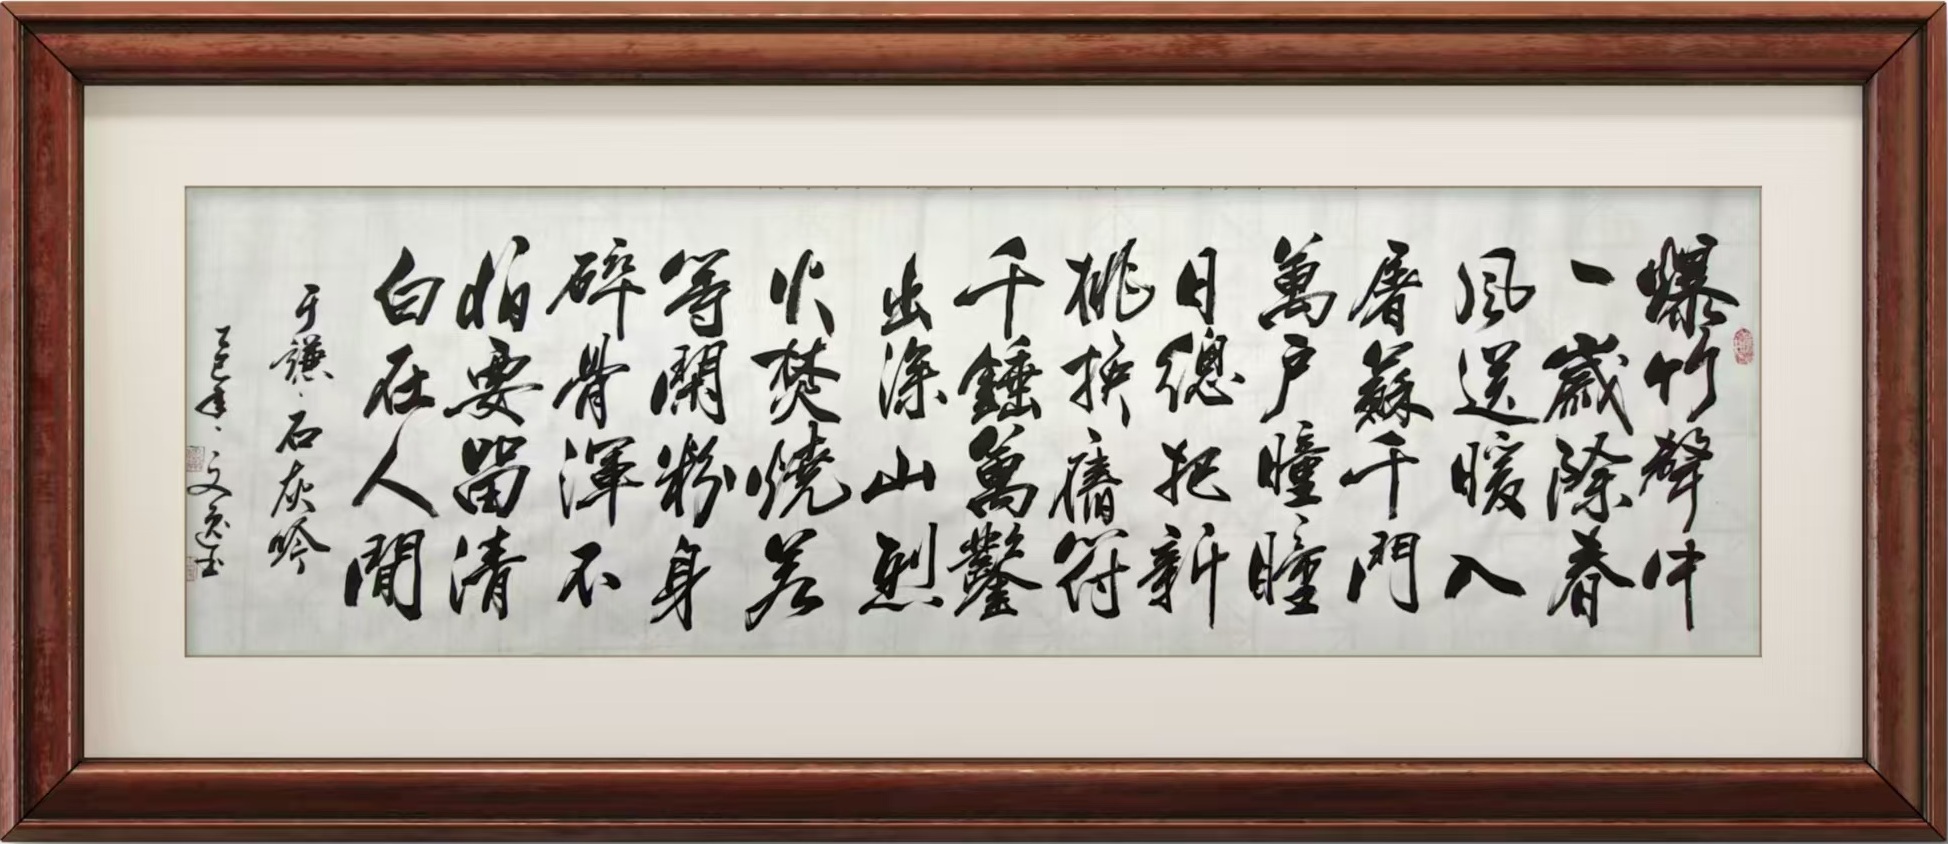 爆竹聲中
一歲除春
風送暖入
屠蘇千門
萬户曈曈
日總把新
桃換舊符
千錘萬鑿
出深山烈
火焚燒若
等閑粉身
碎骨渾不
怕要留清
白在人間
于謙石灰吟
乙巳年文逸